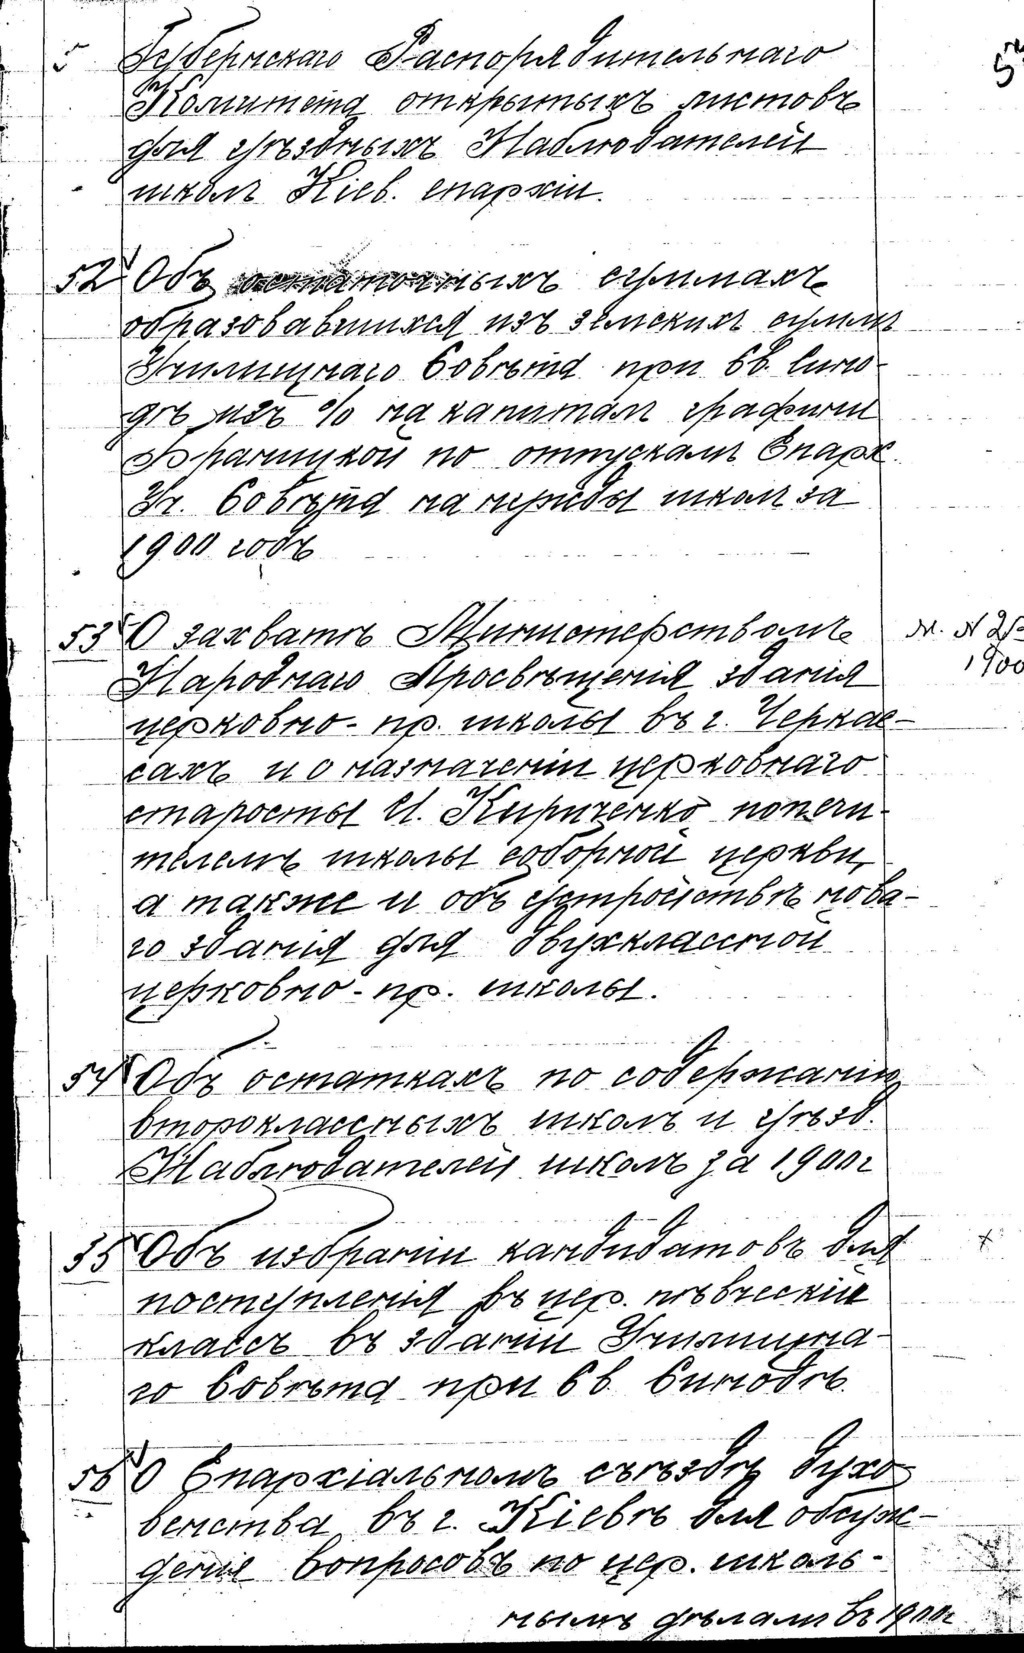 5 Губернскаго Распорядительнаго
Комитета открытыхъ листовъ
для уѣздныхъ Наблюдателей
школъ Кіев. епархіи.
52 Объ остаточныхъ суммахъ
образовавшихся изъ земскихъ суммъ
Училищнаго Совѣта при Св. Сино-
дѣ изъ % на капиталъ графини
Браницкой по отпускамъ Епарх.
Уч. Совѣта на нужды школъ за
1900 годъ
53 О захватѣ Министерствомъ
Народнаго Просвѣщенія зданія
церковно-пр. школы въ г. Черкас-
сахъ и о назначеніи церковнаго
старосты И. Кириченко попечи-
телемъ школы соборной церкви,
а также и объ устройствѣ нова-
го зданія для двухклассной
церковно-пр. школы.
М. N
1900
54 Объ остаткахъ по содержанію
второклассныхъ школъ и уѣзд.
Наблюдателей школъ за 1900 г
55 Объ избраніи кандидатовъ для
поступленія въ цер. пѣвческій
классъ въ зданіи Училищна-
го Совѣта при Св. Синодѣ.
56 О Епархіальномъ съѣздѣ духо-
венства въ г. Кіевѣ для обсуж-
денія вопросовъ по цер. школь-
нымъ дѣламъ въ 1900 г